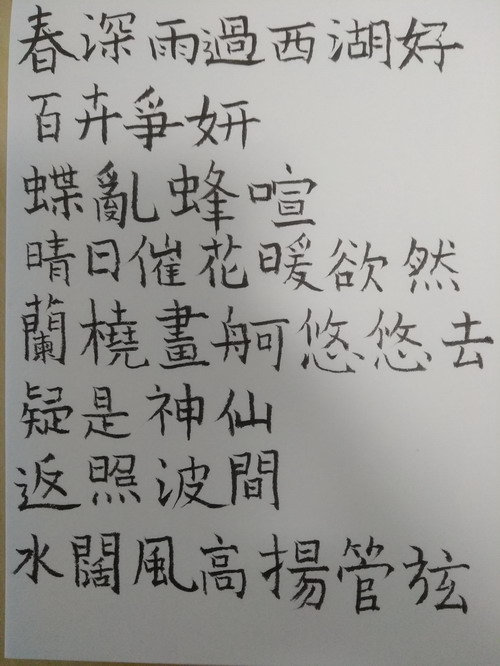 春深雨過西湖好
百卉爭妍
蝶亂蜂喧
晴日催花暖欲然
蘭橈畫舸悠悠去
疑是神仙
返照波間
水闊風高揚管弦